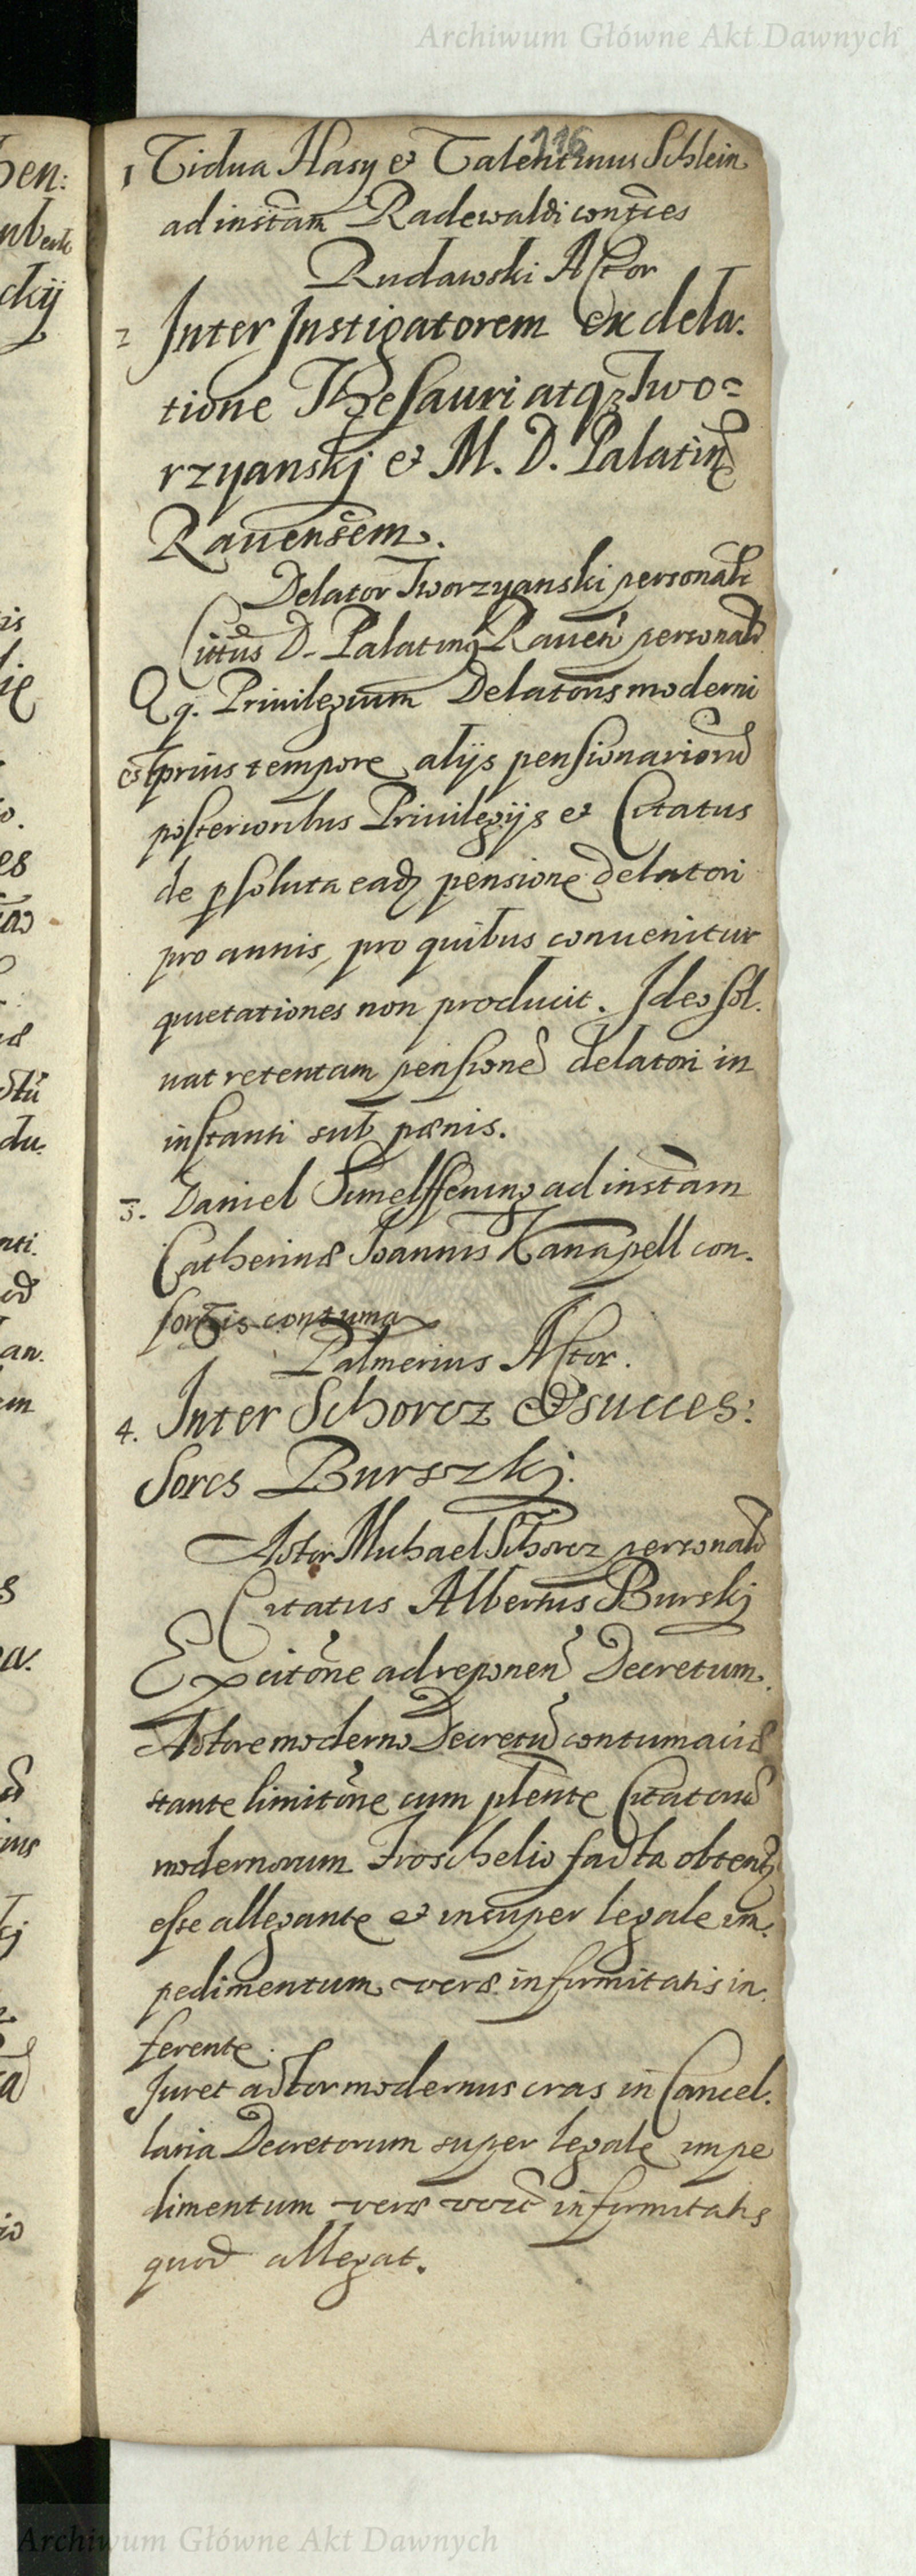 Archiwum Główne Akt Dawnych
116
1 Vidua Hasy et Valentinus Schlein
ad instam Radewaldi contces
Rudawski Actor
2 Inter Instigatorem ex dela:
tione Thesauri atq3 Two=
rzyanskj et M. D. Palatin
Rauensem.
Delator Tworzyanski personalr
Citus D. Palatinus Rauen personalr
Qq. Priuilegium Delatoris moderni
est prius tempore alijs pensionarioru
posterioribus Priuilegijs et Citatus
de psoluta eadz pensione delatori
pro annis, pro quibus conuenitur
quetationes non producit. Ideo sol.
uat retentam pensione delatori in
instanti sub pænis.
3. Daniel Simelffening ad instam
Catherinæ Ioannis Kanapell con.
sortis contuma
Palmerius Actor.
4. Inter Schorcz et succes:
sores Burszkj.
Actor Michael Schorcz personalr
Citatus Albertus Burskj
Ex citone ad reponen Decretum.
Actore moderno Decretu contumaciæ
stante limitone cum plente Citatoru
modernorum Froschelio facta obtent
esse allegante et insuper legale im.
pedimentum veræ infirmitatis in.
ferente.
Juret actor modernus cras in Cancel.
laria Decretorum super legale impe
dimentum veræ infirmitatis
quod allegat.
Archiwum Główne Akt Dawnych